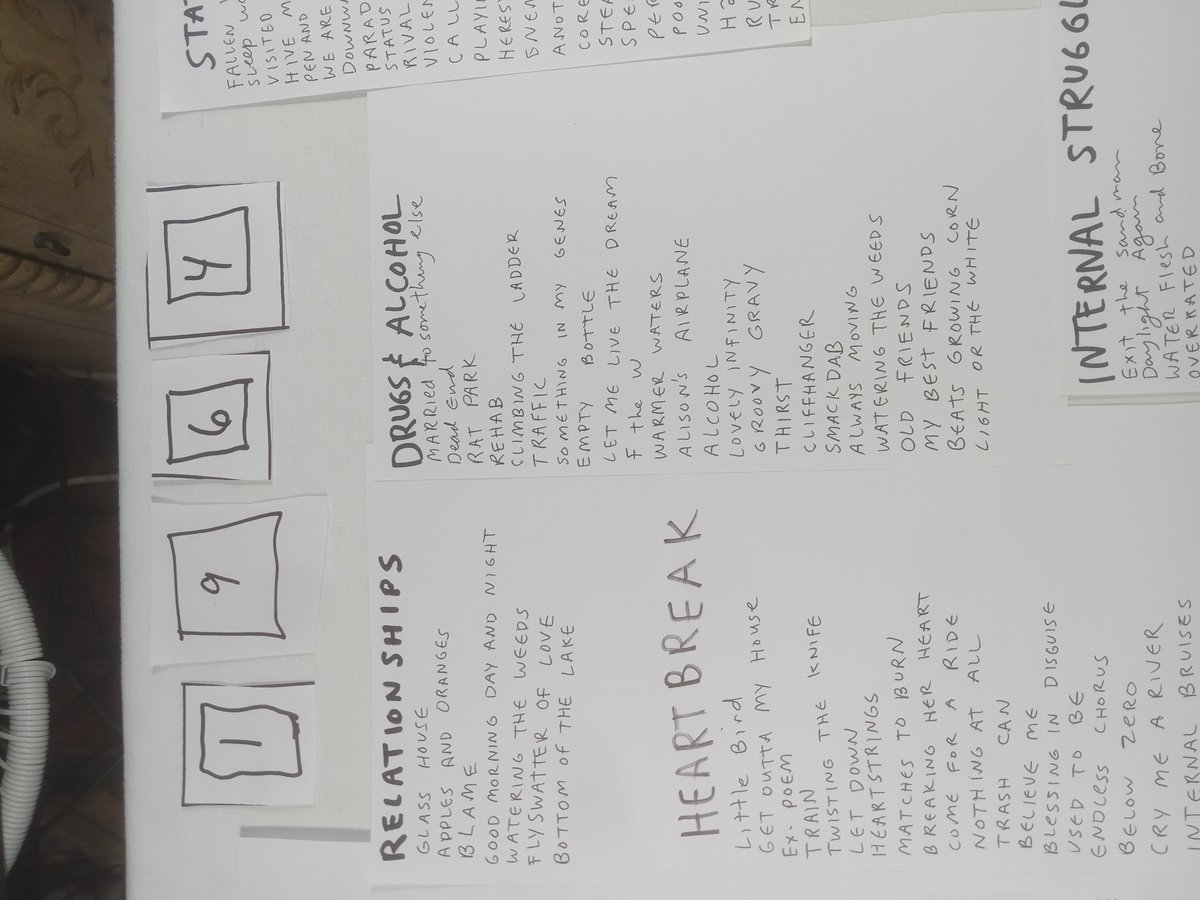 1
9
6
4
RELATIONSHIPS
GLASS HOUSE
APPLES AND ORANGES
BLAME
GOOD MORNING DAY AND NIGHT
WATERING THE WEEDS
FLYSWATTER OF LOVE
BOTTOM OF THE LAKE
HEARTBREAK
Little Bird
GET OUTTA MY HOUSE
Ex-POEM
TRAIN
TWISTING THE KNIFE
LET DOWN
HEARTSTRINGS
MATCHES TO BURN
BREAKING HER HEART
COME FOR A RIDE
NOTHING AT ALL
TRASH CAN
BELIEVE ME
BLESSING IN DISGUISE
USED TO BE
ENDLESS CHORUS
BELOW ZERO
CRY ME A RIVER
INTERNAL BRUISES
DRUGS & ALCOHOL
MARRIED to something else
Dead End
RAT PARK
REHAB
CLIMBING THE LADDER
TRAFFIC
SOMETHING IN MY GENES
EMPTY BOTTLE
LET ME LIVE THE DREAM
F the W
WARMER WATERS
ALISON'S AIRPLANE
ALCOHOL
LOVELY INFINITY
GROOVY GRAVY
THIRST
CLIFFHANGER
SMACKDAB
ALWAYS MOVING
WATERING THE WEEDS
OLD FRIENDS
MY BEST FRIENDS
BEATS GROWING CORN
LIGHT OR THE WHITE
INTERNAL
Exit the Sandman
Daylight Again
WATER Flesh and Bone
OVERRATED
FALLEN
Sleep
VISITED
HIVE
PEN AND
WE ARE
DOWNWA
PARAD
STATUS
RIVAL
VIOLEN
CALL
PLAYIN
HERESY
ANOT
CORE
STEA
SPE
PER
POO
UNI